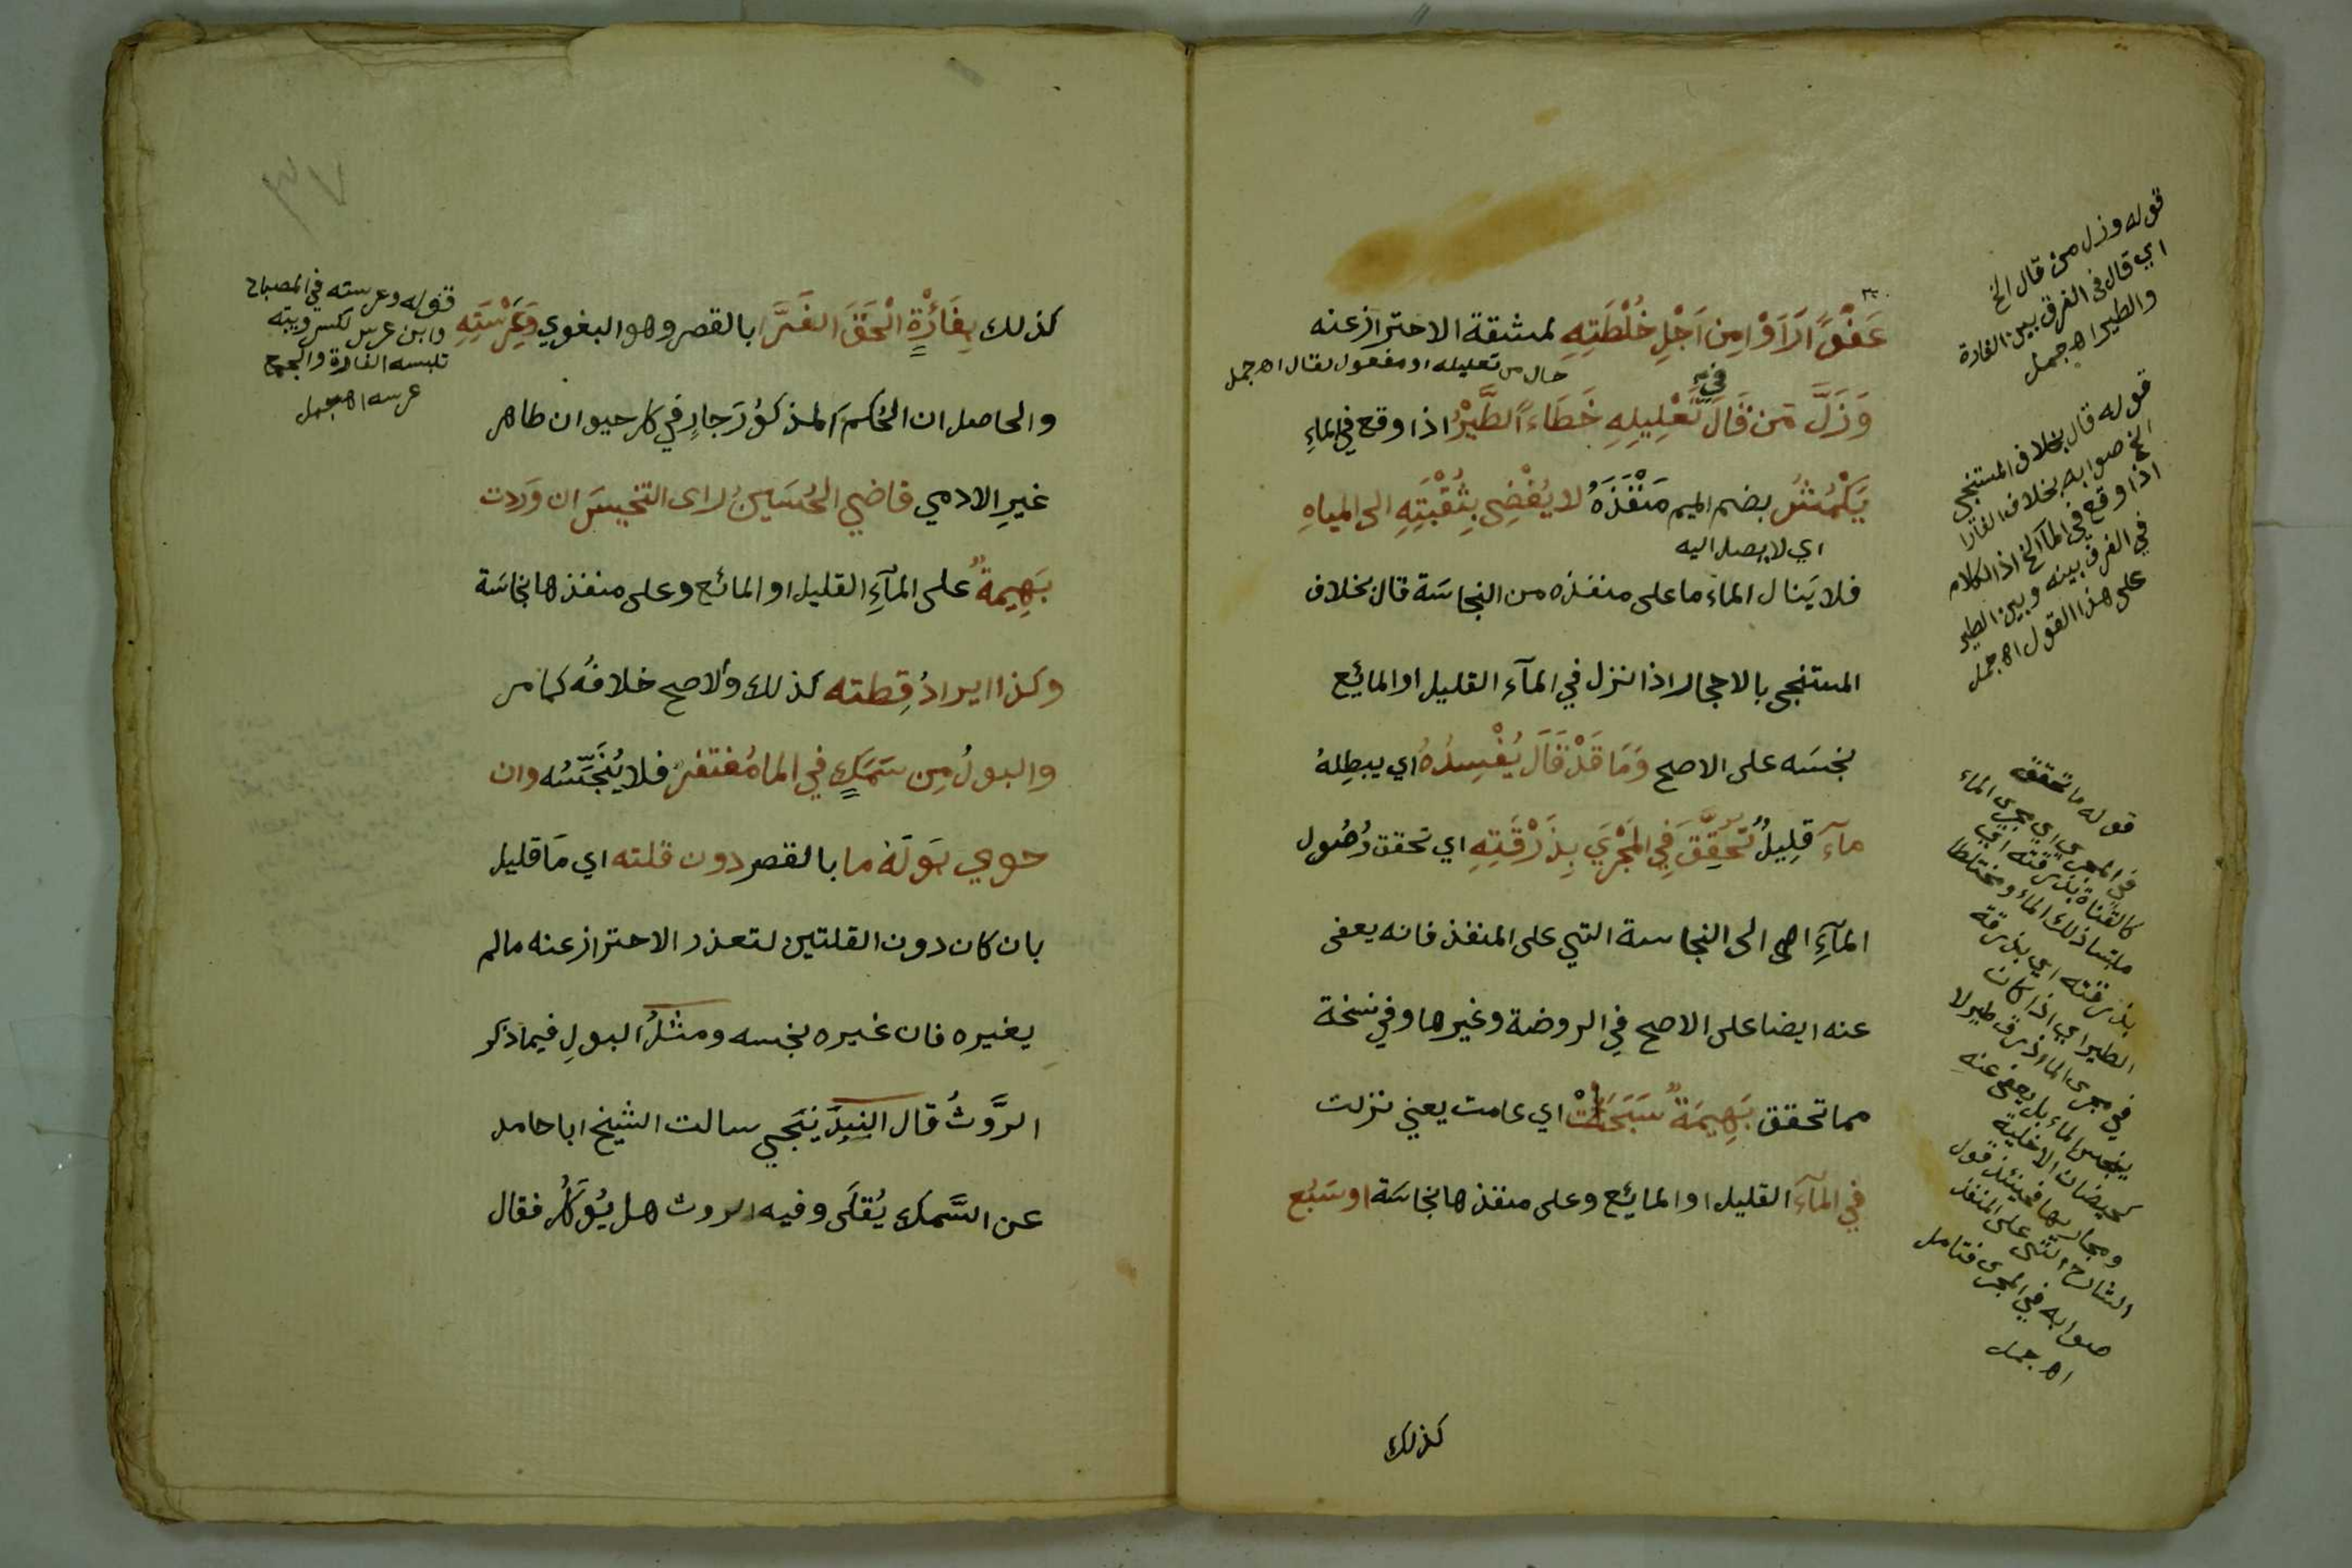 عَفْوًا رَاَوْا مِن اَجْلِ خُلْطَتِهِ لمشقة الاحتراز عنه
حال من تعليله او مفعول لقال اهـ جمل
وَزَلَّ مَن قَالَ فِي تَعْلِيلِهِ خَطَاءً الطَّيْرُ اذا وقع في الماءِ
يَكْمُشُ بضم الميم مَنْفَذَهُ لا يُفْضِي بِثُقْبَتِهِ الى المياهِ
اي لا يصل اليه
فلا يَنال الماء ما على منفذه من النجاسَة قال بخلاف
المستنجي بالاحجار اذا نزل في المآء القليل او المائع
نجسَه على الاصح وَمَا قَدْ قَالَ يُفْسِدُهُ اي يبطِلهُ
مآء قِلِيلٌ تَحَقَّقَ فِي المَجْرَي بِذَرْقَتِهِ اي تحقق وُصُول
المآءِ اهـ الى النجاسة التي على المنفذ فانه يعفى
عنه ايضا على الاصح في الروضة وغيرها وفي نسخة
مما تحقق بَهِيمَةٌ سَبَحَتْ اي عامت يعني نزلت
في المآءَ القليل او المايع وعلى منفذها نجاسَة اوسَبُع
كذلك
قوله وزل من قال الخ
اي قال في الفرق بين الفارة
والطير اهـ جمل
قوله قال بخلاف المستنجي
الخ صوابه بخلاف الفار
اذا وقع في المآ الخ اذ الكلام
في الفرق بينه وبين الطير
على هذا القول اهـ جمل
قوله ما تحقق
في المجري اي مجرى الماء
كالقناة بذرقته اي
ملتبسا ذلك الماء ومختلطا
بذرقته اي بذرقة
الطير اي اذا كان
في مجرى الماء ذرق طير لا
ينجس الماء بل يعفى عنه
كحيضان الاخلية
ومجاريها فحينئذ قول
الشارح التي على المنفذ
صوابه في المجرى فتامل
اهـ جمل
كذلك بِفَارَةٍ الْحَقَ الفَرَّا بالقصر وهو البغوي وَعِرْسَتِهِ
والحاصل ان الحُكم المذكوُر جارٍ في كل حيوان طاهر
غيرِ الادمي قاضي الحُسَينُ راى التنجيسَ ان وَردت
بَهِيمةٌ على المآءِ القليل او المائع وعلى منفذها نجاسَة
وكذا ايرادُ قِطته كذلك والاصح خلافُه كما مر
والبولُ مِن سَمَكٍ في الما مُغتفر فلا يُنَجِّسُه وان
حوي بَولَهُ ما بالقصر دون قلته اي مَا قليل
بان كان دون القلتين لتعذر الاحتراز عنه مالم
يغيره فان غيره نجسه ومثلُ البولِ فيما ذكر
الرَّوثُ قال البَندَنِيجَي سالت الشيخ ابا حامد
عن السَّمك يُقلَى وفيه الروث هل يُؤكلُ فقال
قوله وعرسته في المصباح
وابن عرس بكسر دويبة
تلبسه الفارة والجمع
عرسه اهـ جمل